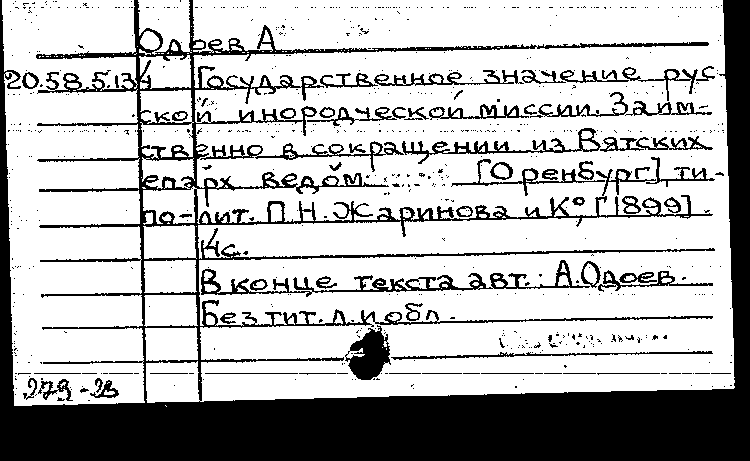 Одоев, А
20.58.5.134 Государственное значение рус-
ской инородческой миссии. Заим-
ственно в сокращении из Вятских
епарх ведом. [Оренбург], ти-
по-лит. П.Н.Жаринова и К°, [1899].
14с.
В конце текста авт.: А.Одоев.
Без тит. л. и обл.
279-23